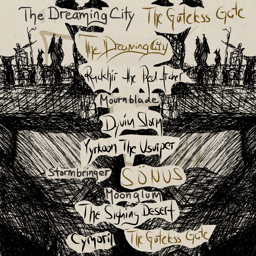 The Dreaming City The Gateless Gate
The Dreaming City
Rackhir the Red Archer
Mournblade
Dyvim Slorm
Yyrkoon The Usurper
Stormbringer SONUS
Moonglum
The Sighing Desert
Cymoril The Gateless Gate